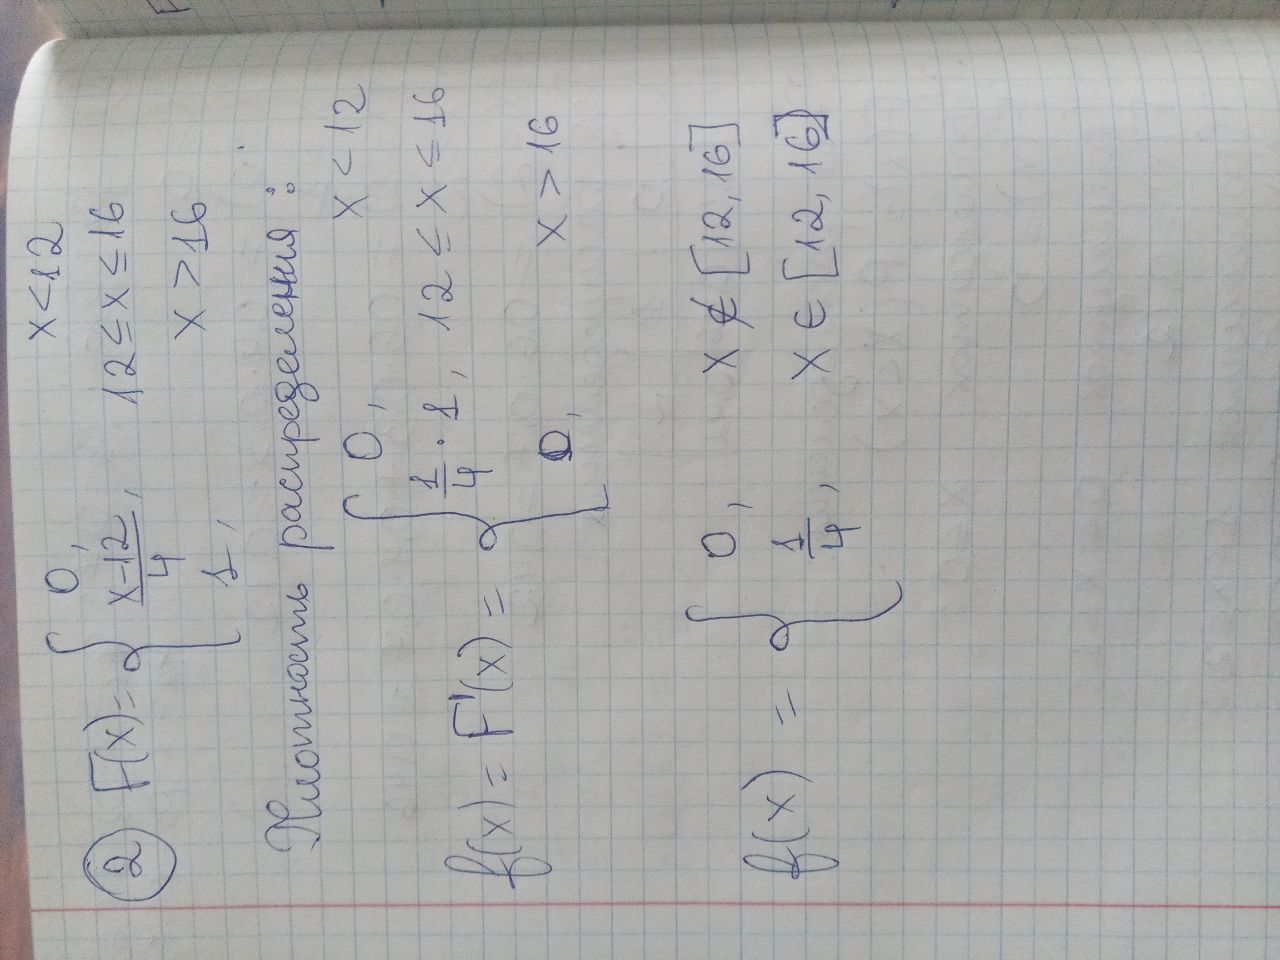 ② F(x)= { 0, x<12
x-12/4, 12≤x≤16
1, x>16
Плотность распределения:
f(x) = F'(x) = { 0, x<12
1/4 · 1, 12≤x≤16
0, x>16
f(x) = { 0, x∉[12,16]
1/4, x∈[12,16]